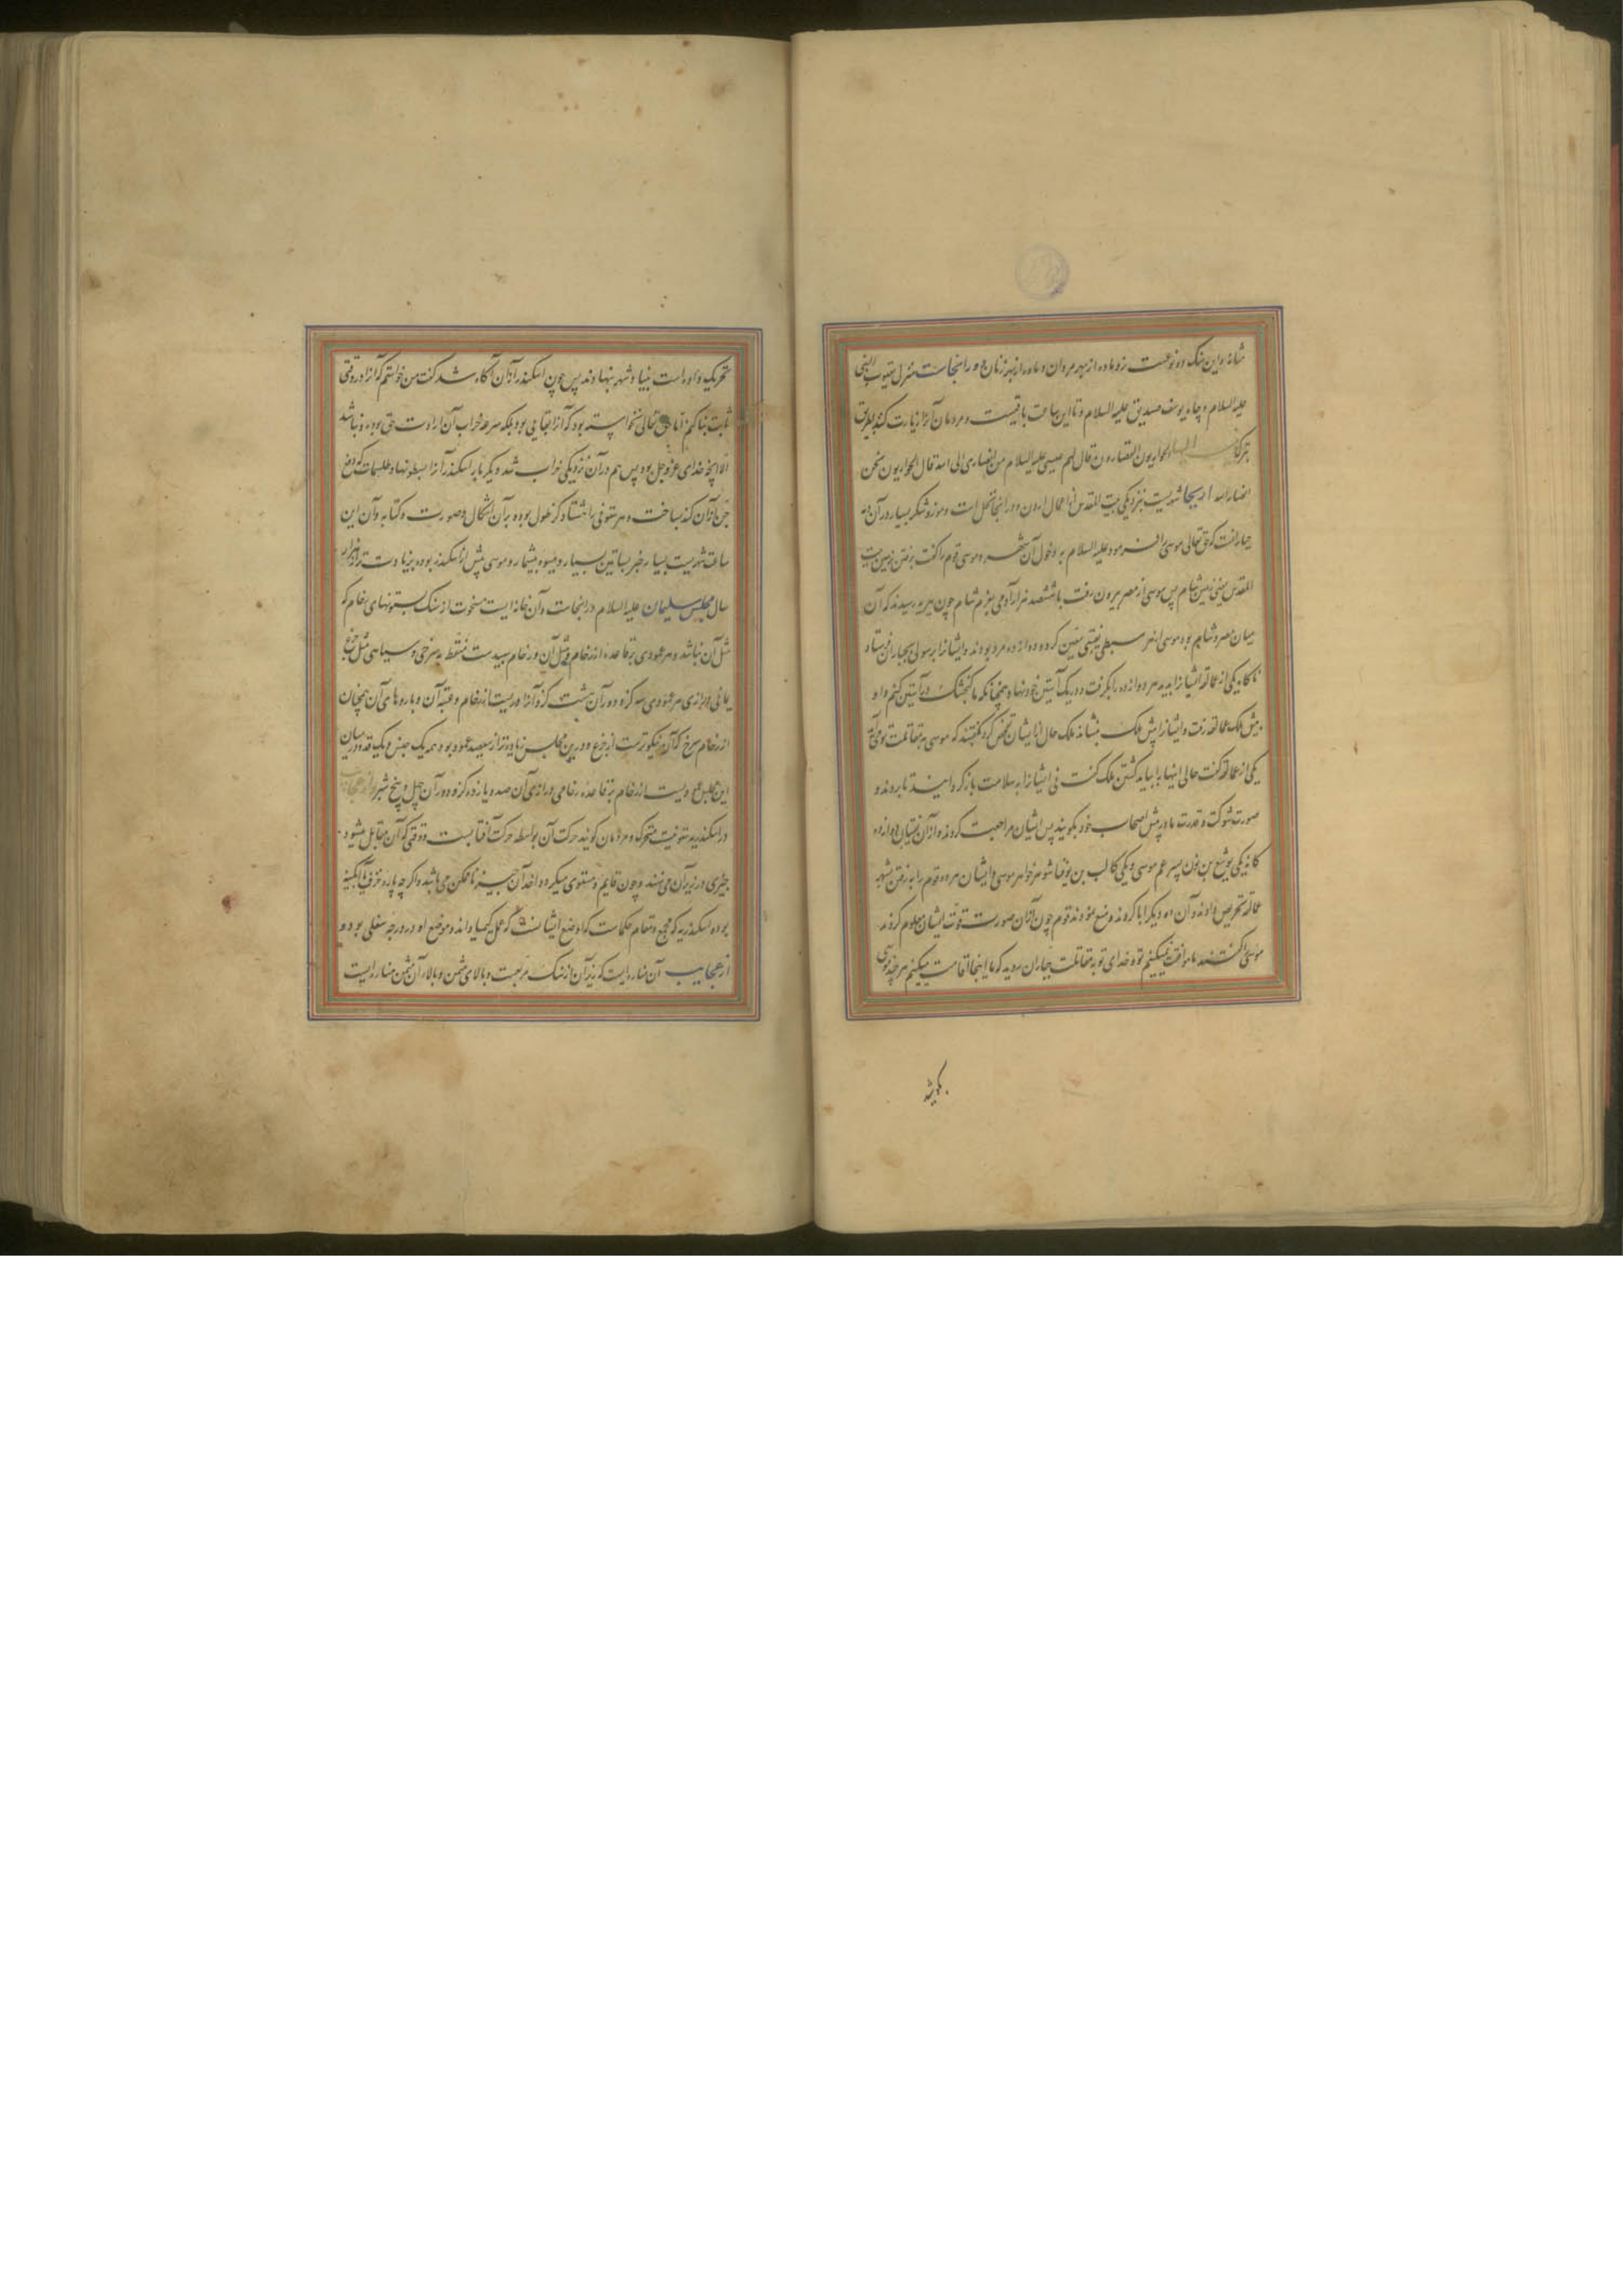 مثانه و این سنک دو نوعست نر و ماده از بهر مردان و ماده از بهر زنان و در انجاست منزل یعقوب النبی
علیه السلام و چاه یوسف صدیق علیه السلام و تا این ساعت باقیست و مردمان آنرا زیارت کنند بطریق
تبرک الحواریون القصارون قال لهم عیسی علیه السلام من انصاری الی الله قال الحواریون نحن
انصار الله اریحا شهریست بنزدیکی بیت المقدس از اعمال اردن و در انجا نخل است و موز و شکر بسیار و در آن ده
جبارانست که حق تعالی موسی را فرمود علیه السلام به دخول آن شهر و موسی قوم را کفت برفتن زمین بیت
المقدس یعنی زمین شام پس موسی از مصر بیرون رفت با ششصد هزار آدمی بعزم شام چون به تیه رسیدند که آن
میان مصر و شام بود موسی از هر سبطی نقیبی معین کرد و دوازده مرد بودند و ایشانرا برسولی بجباران فرستاد
ناکاه یکی از عمالقه ایشانرا بدید هر دوازده را بکرفت و در یک آستین خود نهاد همچنانکه ما کنجشک در آستین کنیم و او
پیش ملک عمالقه رفت و ایشانرا پیش ملک بنشاند ملک حال از ایشان تفحص کرد کفتند که موسی به مقاتلت تو می آید
یکی از عمالقه کفت حالی اینها را بباید کشتن ملک کفت نی ایشانرا به سلامت باز کردانید تا بروند و
صورت شوکت و قدرت ما در پیش اصحاب خود بکویند پس ایشان مراجعت کردند و از آن نقیبان دوازده
کانه یکی یوشع بن نون پسر عم موسی و یکی کالب بن یوفنا شوهر خواهر موسی و ایشان هر دو قوم را به رفتن شهر
عمالقه تحریص دادند و آن ده دیکر ابا کردند و منع نمودند قوم چون از آن صورت قوت ایشان معلوم کردند
موسی را کفتند ما موافقت نمیکنیم تو و خدای تو به مقاتلت جباران روید که ما اینجا اقامت میکنیم هر چند موسی
بکوشید
تحریک داده است بنیاد شهر بنهادند پس چون اسکندر از آن آکاه شد کفت من خواستم که آنرا در وقتی
ثابت بنا کنم اما حق تعالی نخواسته بود که آنرا بقایی بود بلکه سرعه خراب آن ارادت حق بوده و نباشد
الا انچه خدای عز و جل بود پس هم در آن نزدیکی خراب شد دیکر بار اسکندر آنرا اسطونها و طلسمات که دفع
جن از آن کند بساخت و هر ستونی را هشتاد کز طول بوده بر آن اشکال و صورت و کتابه و آن این
ساعت شهریست بسیار خیر بساتین بسیار و میوه بیشمار و موسی پیش از اسکندر بوده بزیادت از هزار
سال مجلس سلیمان علیه السلام در انجاست و آن خانه ایست منحوت از سنک بستونهای رخام که
مثل آن نباشد و هر عمودی بر قاعده از رخام و مثل آن و رخام سپیدست منقط به سرخی و سیاهی مثل جزع
یمانی درازی هر عمودی سی کز و دور آن هشت کز و آنرا دریست از رخام و عتبه آن و بازوهای آن همچنان
از رخام سرخ که آن نیکوترست از جزع و درین مجلس زیادتر از سیصد عمود بود همه یک جنس و یک قد و در میان
این مجلس عمودیست از رخام بر قاعده رخامی درازی آن صد و یازده کز و دور آن چهل و پنج شبر و از عجایب
در اسکندریه ستونیست متحرک و مردمان کویند حرکت آن بواسطه حرکت آفتابست و وقتی که آن مقابل میشود
چیزی در زیر آن می نهند و چون قایم و مستوی میکردد اخذ آن چیز ناممکن می باشد و اکرچه پاره خزف یا آبکینه
بوده اسکندریه که مجمع و مقام حکماست که از وضع ایشانست که عمل کیمیا داند و موضع او در درجه سفلی بود و
از عجایب آن مناره ایست که زیر آن از سنک مربعست و بالای مثمن و بالا آن مثمن مناره ایست